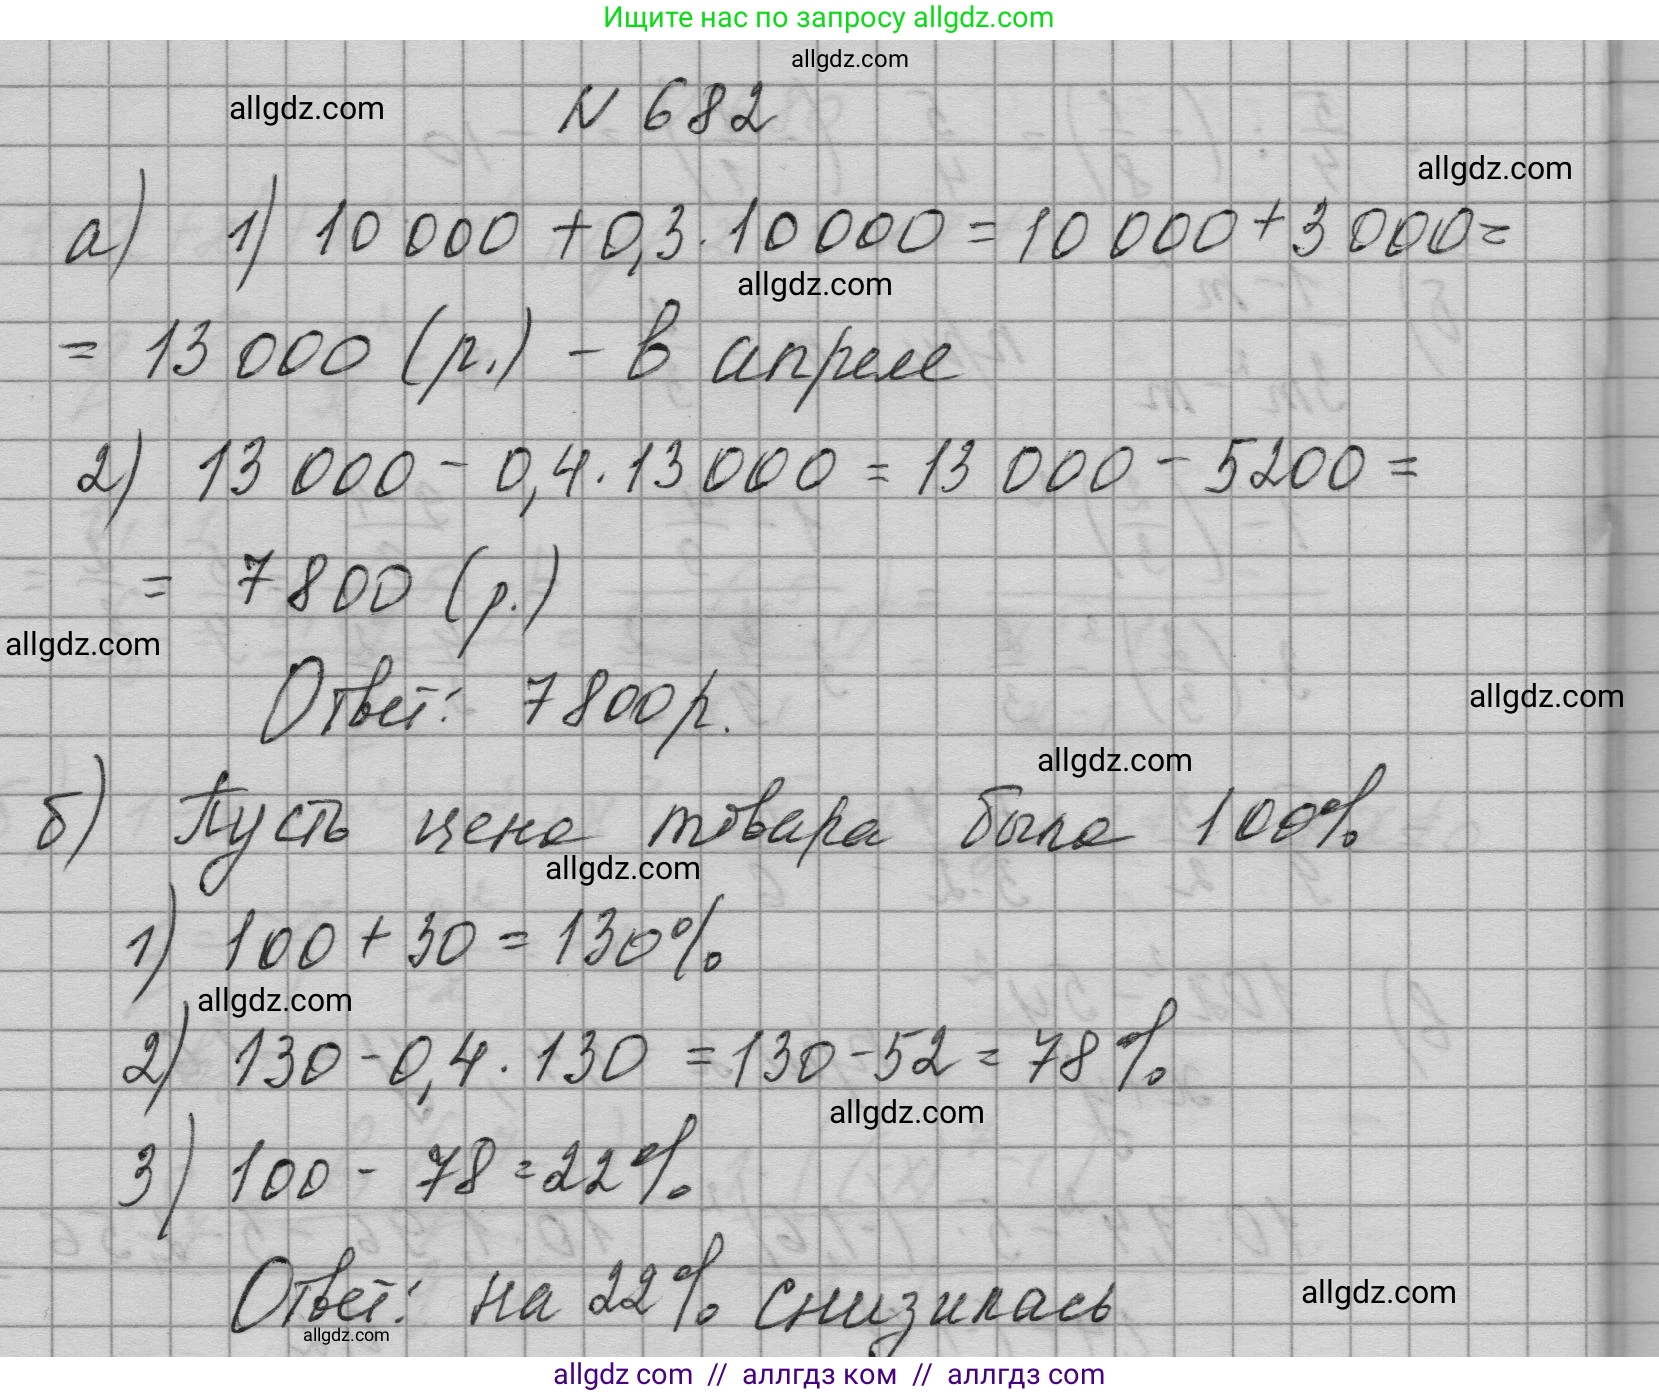 Ищите нас по запросу allgdz.com
allgdz.com
allgdz.com
N 682
allgdz.com
а) 1) 10 000 + 0,3 · 10 000 = 10 000 + 3 000 =
allgdz.com
= 13 000 (р.) - в апреле
2) 13 000 - 0,4 · 13 000 = 13 000 - 5200 =
= 7 800 (р.)
allgdz.com
Ответ: 7 800 р.
allgdz.com
allgdz.com
б) Пусть цена товара была 100%
allgdz.com
1) 100 + 30 = 130%
allgdz.com
2) 130 - 0,4 · 130 = 130 - 52 = 78%
allgdz.com
3) 100 - 78 = 22%
Ответ: на 22% снизилась
allgdz.com
allgdz.com
allgdz com // аллгдз ком // аллгдз com